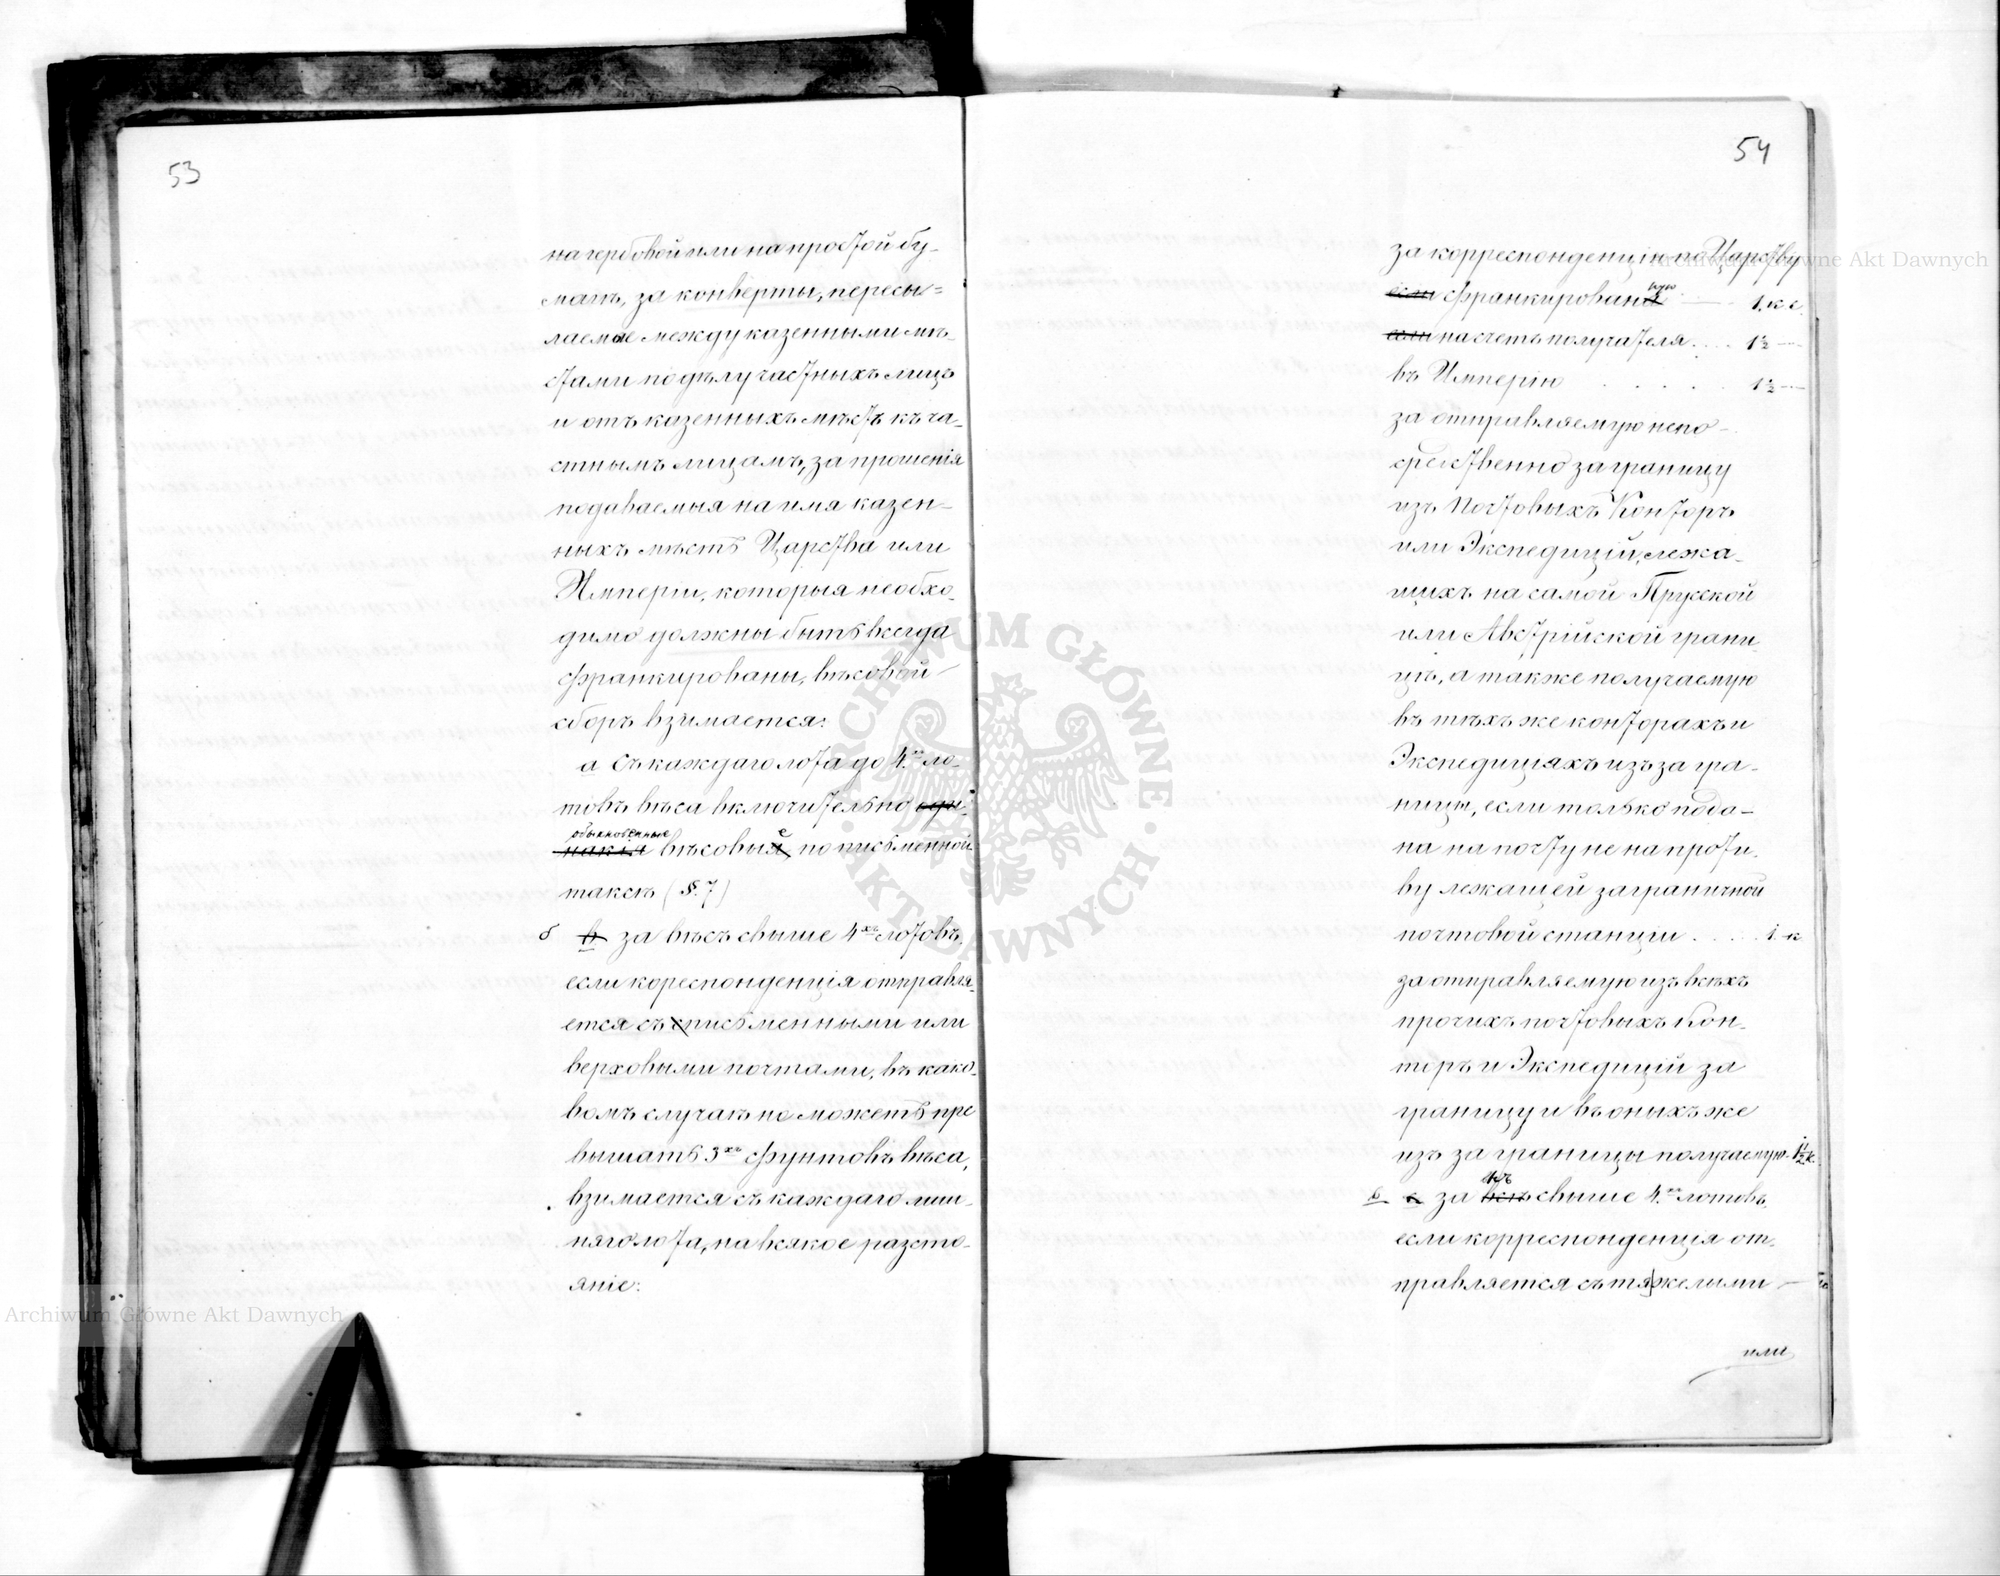 53
на гербовой или на простой бу-
магѣ, за конверты, пересы-
лаемые между казенными мѣ-
стами по дѣлу частныхъ лицъ
и отъ казенныхъ мѣстъ къ ча-
стнымъ лицамъ, за прошенія
подаваемыя на имя казен-
ныхъ мѣстъ Царства или
Имперіи, которыя необхо-
димо должны быть всегда
франкированы, вѣсовой
сборъ взимается:
а съ каждаго лота до 4.хъ ло-
товъ вѣса включительно оди-
обыкновенные
накія вѣсовые, по письменной
таксѣ (§. 7)
б в за вѣсъ свыше 4хъ лотовъ,
если кореспонденція отправля-
ется съ письменными или
верховыми почтами, въ како-
вомъ случаѣ не можетъ пре
вышать 3хъ фунтовъ вѣса,
взимается съ каждаго лиш-
няго лота, на всякое разсто-
яніе:
54
за корреспонденцію по Царству
если франкированную 1. к с.
если на счетъ получателя . . . 1½
въ Имперію . . . . 1½
за отправляемую непо-
средственно за границу
изъ Почтовыхъ Конторъ
или Экспедицій, лежа-
щихъ на самой Прусской
или Австрійской грани
цѣ, а также получаемую
въ тѣхъ же конторахъ и
Экспедиціяхъ изъ за гра-
ницы, если только пода-
на на почту не на проти-
ву лежащей заграничной
почтовой станціи . . . . 1. к
за отправляемую изъ всѣхъ
прочихъ почтовыхъ Кон-
торъ и Экспедицій за
границу и въ оныхъ же
изъ за границы получаемую. 1½ к.
в с за вѣсъ свыше 4.хъ лотовъ,
если корреспонденція от-
правляется съ тяжелыми
или
Archiwum Główne Akt Dawnych
Archiwum Główne Akt Dawnych
ARCHIWUM GŁÓWNE
AKT DAWNYCH